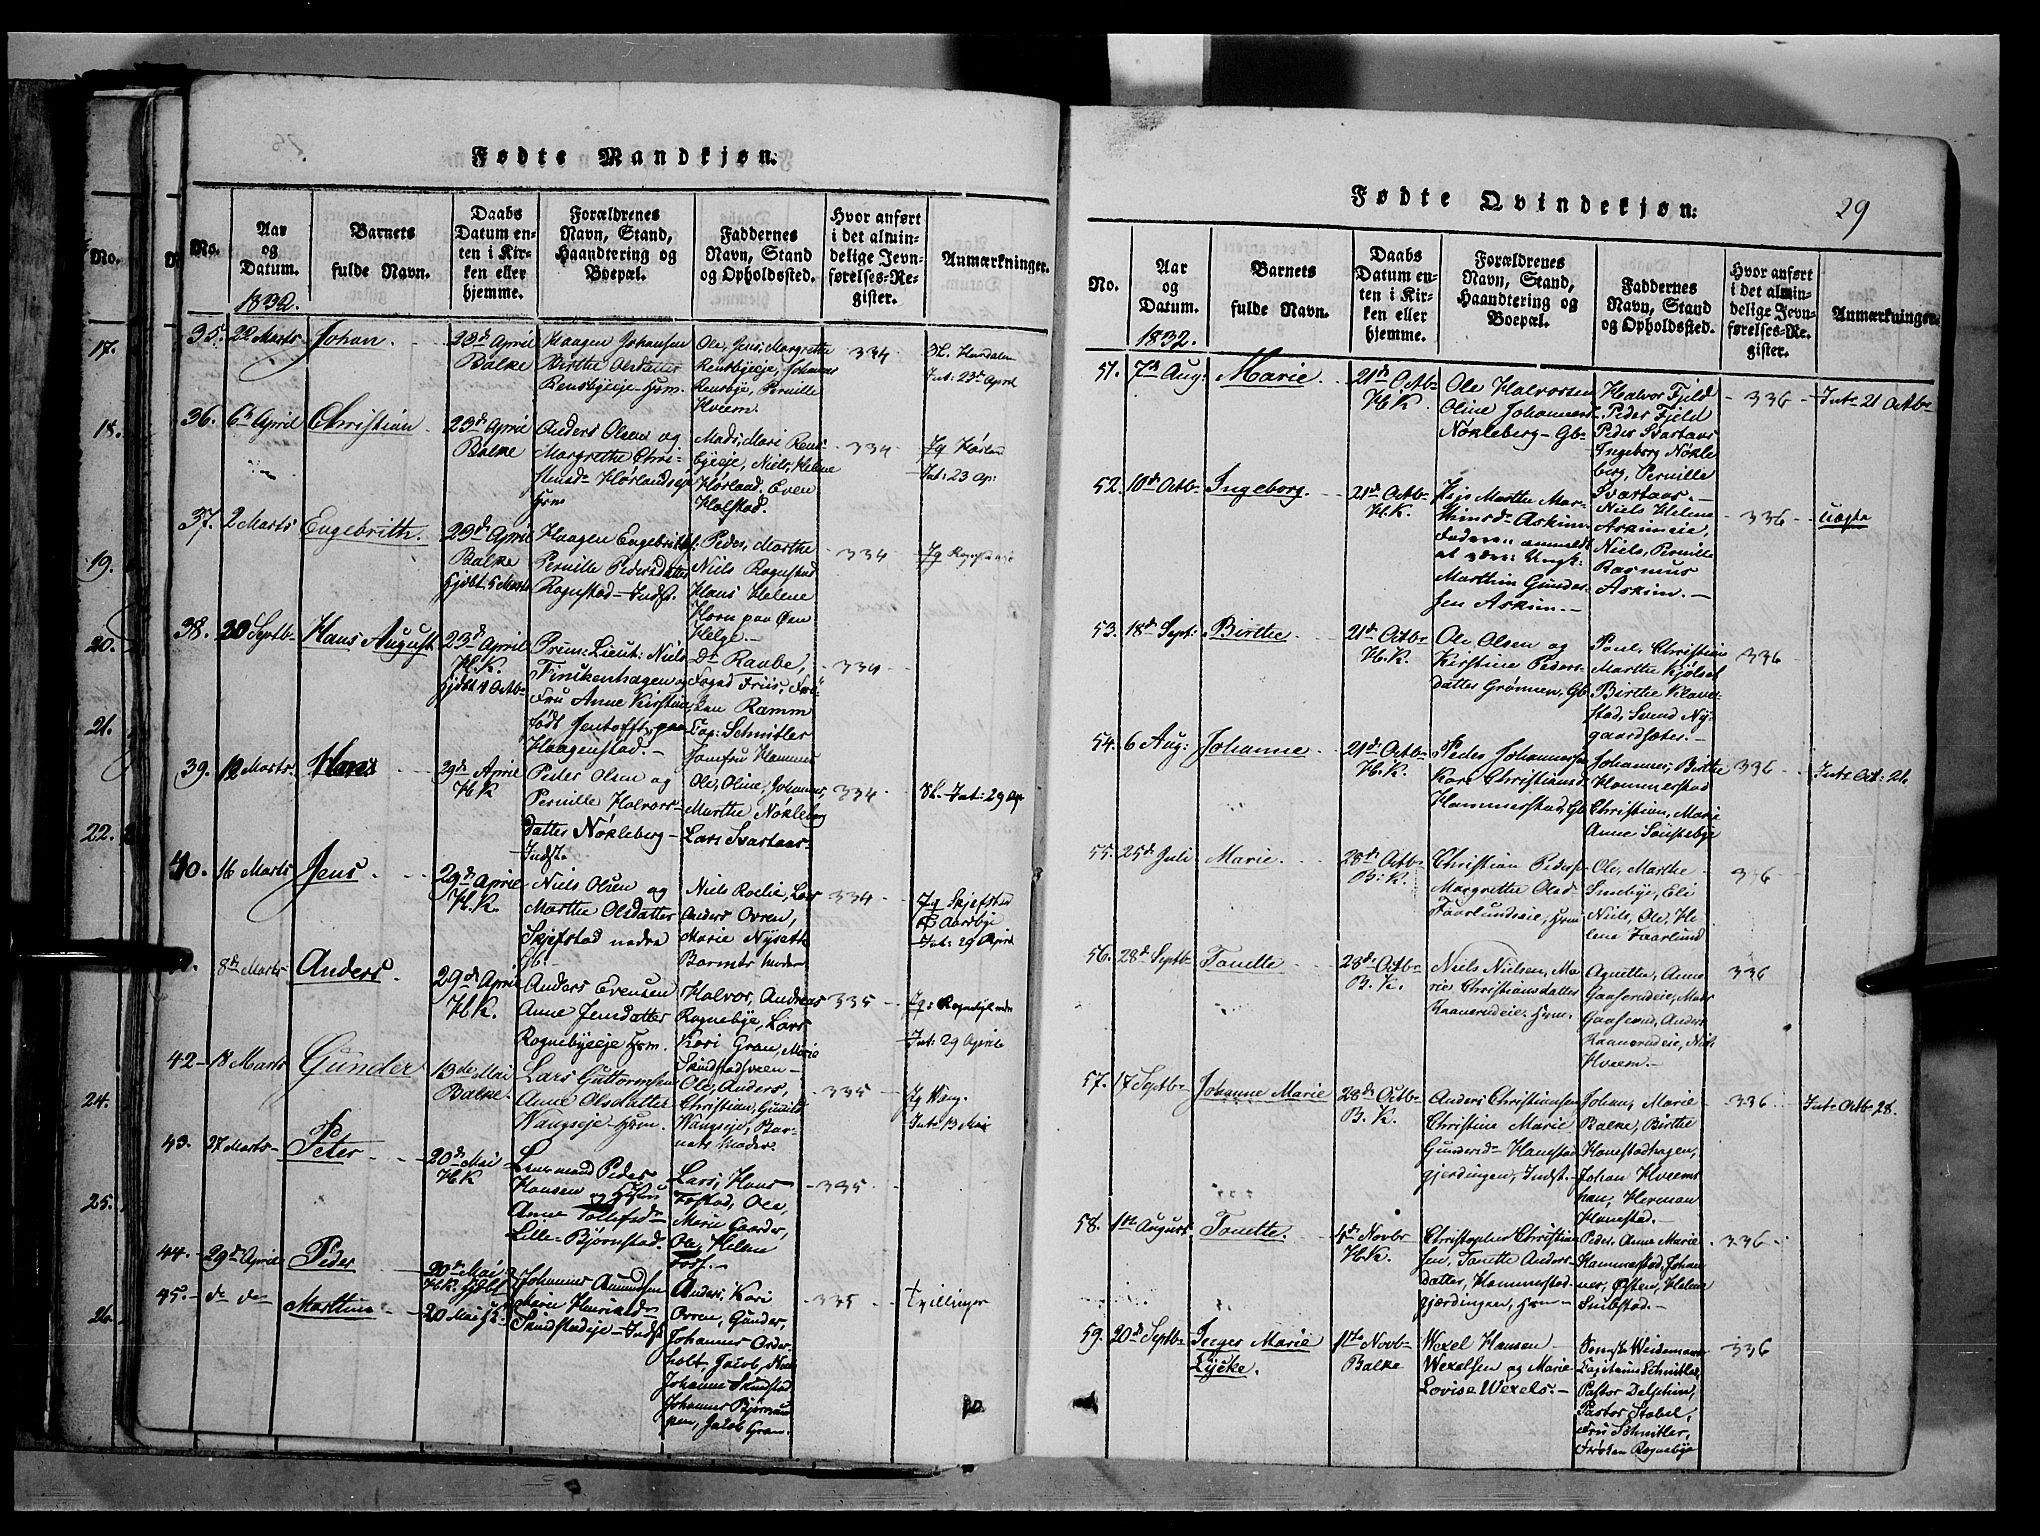 Fødte Mandkjøn.
No.
Aar og Datum.
Barnets fulde Navn.
Daabs Datum enten i Kirken eller hjemme.
Forældrenes Navn, Stand, Haandtering og Boepæl.
Faddernes Navn, Stand og Opholdssted.
Hvor anført i det almindelige Jevnførelses-Register.
Anmærkninger.
1832.
35. 22 Marts Johan.
23d April
Balke
Haagen Johansen
Birthe Olsdatter
Rensbyeeje Hsm.
Ole, Jens, Margrethe
Rensbyeeje, Johannes
Rensbye, Pernille
Hveem.
334
Int: 23d April
36. 6 April Christian
23d April
Balke
Anders Olsen og
Margrethe Chri-
stensd- Hørlandseje
Hsm
Mads, Mari Rens-
byeeje, Niels, Helene
Hørland, Even
Holstad.
334
Int: 23 Ap:
37. 2 Marts Engebrith.
23d April
Balke
Hjdbt 5 Marts
Haagen Engebriths:
Pernille Pedersdatter
Rognstad - Indst.
Peder, Marthe
Niels Rognstad
Hans Helene
Horn paa Øen
Helge.
334
38. 30 Septb. Hans August
23d April
H.K.
Hjdbt 1 Octb-
Prem: Lieut: Niels
Finckenhagen og
Fru Anne Kirstine
født Jentofft, paa
Haagenstad.
Dr Raabe,
Foged Friis, Frø-
ken Ramm
Cap: Schnitler
Jomfru Hammer
334
39. 12 Marts Hans
29d April
H.K
Peder Olsen og
Pernille Halvors-
datter Nøkleberg -
Indst.
Ole, Oline, Johannes,
Marthe Nøkleberg
Lars Svartaas.
334
Int: 29 Ap
40. 16 Marts Jens
29d April
H.K.
Niels Olsen og
Marthe Olsdatter
Skjefstad nedre
Gb.
Niels Roelie, Lars
Anders Ovren,
Marie Nyseth
Barnets Moder
334
Skjefstad
Int: 29 April
8de Marts Anders.
29d April
H.K.
Anders Evensen
Anne Jensdatter
Rognebyeeje Hsm.
Halvor, Andreas
Rognebye, Lars
Kari Gran, Marie
Skindstadsveen
335
Int: 29 April
42 - 18 Marts Gunder
13de Mai
Balke.
Lars Guttormsen
Anne Olsdatter
Wangseje Hsm.
Ole, Anders,
Christian, Gunild
Wangseje, Bar-
nets Moder.
335
Int: 13 Mai
43. 27 Marts Peter
20d Mai
H.K
Lensmand Peder
Hansen og Hustru
Anne Tollefsd-
Lille-Bjørnstad.
Lars, Hans
Fostad, Ole,
Marie Gaarder,
Ole, Helene
Foss.
335
44. 29d April Peder
45. d- d- Marthine
20d Mai
H.K. Hjdbt
20 Mai
Johannes Amundsen
Marie Henriksd-
Skindstadeje - Indst
Anders, Kari
Ovren, Gunder,
Johannes Order-
holt, Jacob,
Johanne Skindstad
Johannes Bjørnsum
pen, Jacob Gran.
335
Tvillinger
Fødte Qvindekjøn.
29
No.
Aar og Datum.
Barnets fulde Navn.
Daabs Datum enten i Kirken eller hjemme.
Forældrenes Navn, Stand, Haandtering og Boepæl.
Faddernes Navn, Stand og Opholdssted.
Hvor anført i det almindelige Jevnførelses-Register.
Anmærkninger.
1832.
51. 7d Aug: Marie
21d Octb-
H.K.
Ole Halvorsen
Oline Johannesd
Nøkleberg - Gb-
Halvor Fjeld
Peder Fjeld
Peder Svartaas
Ingeborg Nøkle
berg, Pernille
Svartaas.
336
Int: 21 Octb-
52. 10d Octb- Ingeborg.
21d Octb-
H.K.
Pige Marthe Mar-
thinsd- Askim.
Faderen anmeldt
at være: Ungk:
Marthin Gunder-
sen Askim.
Niels, Helene
Askimeie,
Niels, Pernille
Rasmus
Askim.
336
Uægte
53. 18d Sept: Birthe.
21d Octb-
H.K.
Ole Olsen og
Kirstine Peders-
datter Grønnen, Gb
Poul, Christian
Marthe Kjølset
Birthe Klave-
stad, Svend Ny-
gaardsæter.
336
54. 6 Aug: Johanne
21d Octb-
H.K.
Peder Johannesen
Kari Christiansd
Hammerstad Gb
Johannes, Birthe
Hammerstad
Christian, Marie
Anne Soustebye
336
Int: Oct: 21.
55. 25d Juli Marie
28d Octb-
B.K.
Christian Peders-
Margrethe Olsd-
Faarlundseie, Hsm
Ole, Marthe
Smebye, Eli
Niels, Ole, He-
lene Faarlund
336
56. 28d Septb- Tonette
28d Octb-
B.K.
Niels Nielsen, Ma-
rie Christiansdatter
Kaaerudeie Hsm.
Agnethe, Anne
Gaaserudeie, Mads
Gaaserud, Anders
Kaaerudeie, Niels
Hveem.
336
57. 17 Septb- Johanne Marie
28d Octb-
B.K.
Anders Christiansen
Christine Marie
Gundersd- Hanestad
gjerdingen, Indst.
Johan, Marie
Balke, Birthe
Hanestadhagen,
Johan Hveems
han, Herman
Hanestad.
336
Int: Octb- 28.
58. 1te August Tonette
4de Novbr
H.K.
Christopher Christian
sen, Tonette Anders-
datter, Hammerstad-
gjærdingen, Hsm
Peder, Anne Marie
Hammerstad, Johan-
nes, Østen, Helene
Snibstad.
336
59. 20d Septb- Inger Marie
Lycke.
11te Novb-
Balke
Wexel Hansen
Wexelsen og Marie
Lovise Wexels.
Weidemann
Capitaine Schnitler,
Pastor Delphin,
Pastor Stabel,
Fru Schnitler,
Frøken Rognebye
336
No.
17.
18.
19.
20.
21.
22.
24.
25.
26.